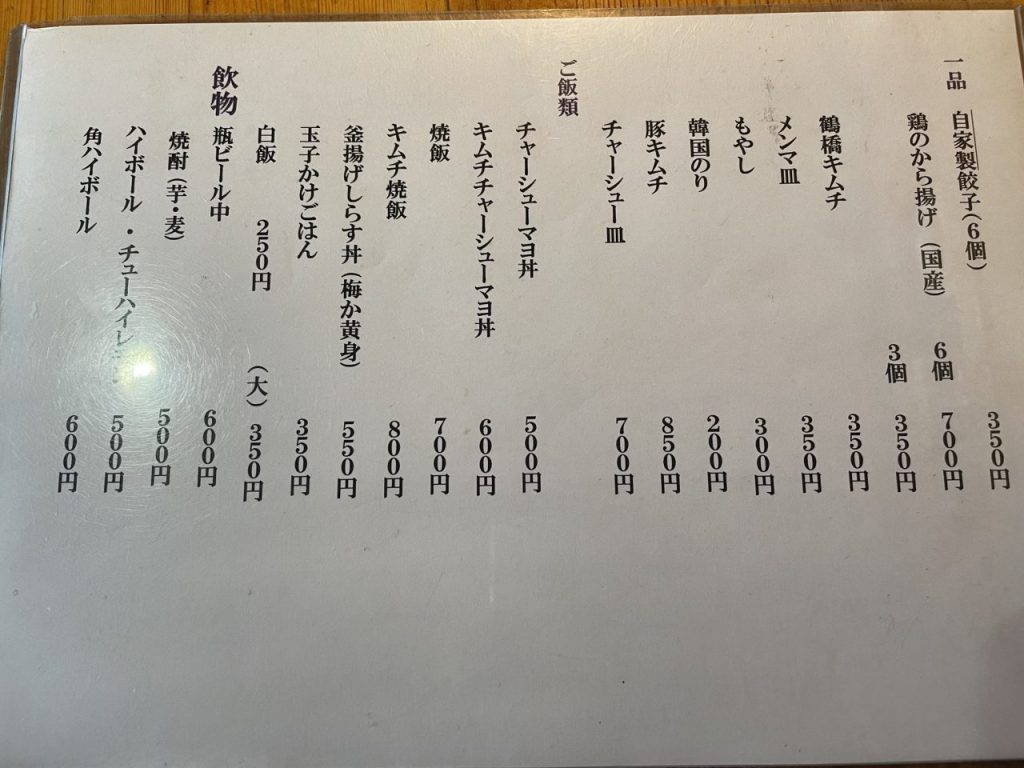 一品
自家製餃子(6個) 350円
鶏のから揚げ (国産) 6個 700円
3個 350円
鶴橋キムチ 350円
メンマ皿 350円
もやし 300円
韓国のり 200円
豚キムチ 850円
チャーシュー皿 700円
ご飯類
チャーシューマヨ丼 500円
キムチチャーシューマヨ丼 600円
焼飯 700円
キムチ焼飯 800円
釜揚げしらす丼(梅か黄身) 550円
玉子かけごはん 350円
白飯 250円 (大) 350円
飲物
瓶ビール中 600円
焼酎(芋・麦) 500円
ハイボール・チューハイ 500円
角ハイボール 600円